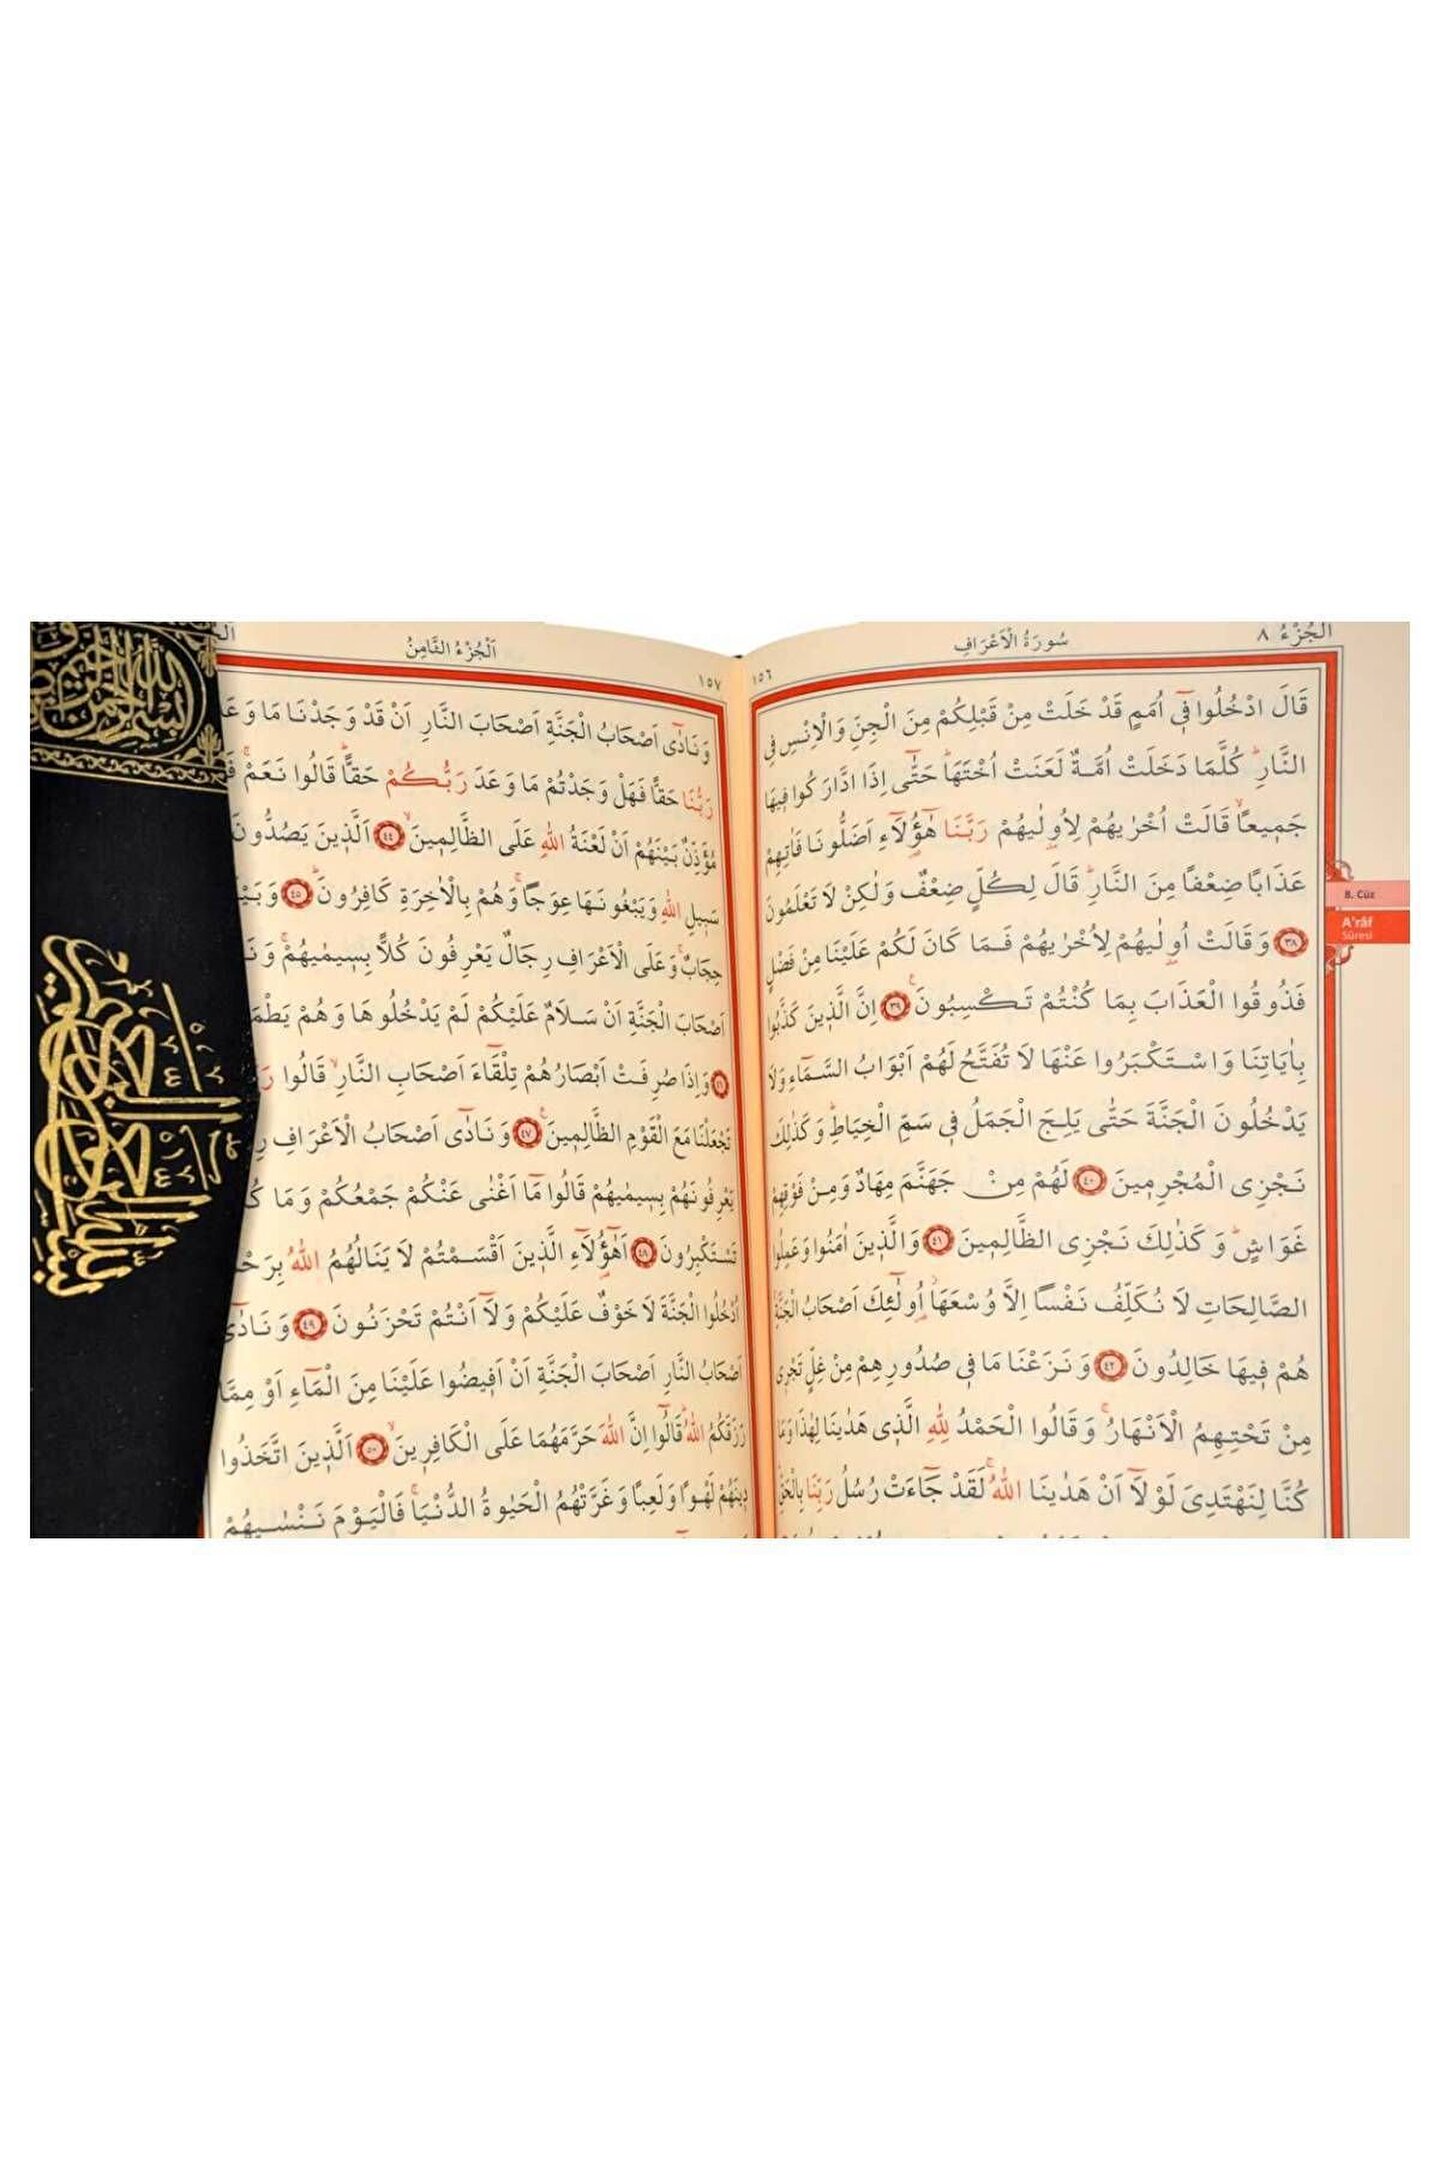 الجزء ٨
سورة الاعراف
١٥٦
قَالَ ادْخُلُوا فٖٓي اُمَمٍ قَدْ خَلَتْ مِنْ قَبْلِكُمْ مِنَ الْجِنِّ وَالْاِنْسِ فِي
النَّارِؕ كُلَّمَا دَخَلَتْ اُمَّةٌ لَعَنَتْ اُخْتَهَاؕ حَتّٰٓى اِذَا ادَّارَكُوا فٖيهَا
جَمٖيعاًۙ قَالَتْ اُخْرٰيهُمْ لِاُو۫لٰيهُمْ رَبَّنَا هٰٓؤُ۬لَٓاءِ اَضَلُّونَا فَاٰتِهِمْ
عَذَابًا ضِعْفًا مِنَ النَّارِؕ قَالَ لِكُلٍّ ضِعْفٌ وَلٰكِنْ لَا تَعْلَمُونَ
٣٨ وَقَالَتْ اُو۫لٰيهُمْ لِاُخْرٰيهُمْ فَمَا كَانَ لَكُمْ عَلَيْنَا مِنْ فَضْلٍ
فَذُوقُوا الْعَذَابَ بِمَا كُنْتُمْ تَكْسِبُونَۚ ٣٩ اِنَّ الَّذٖينَ كَذَّبُوا
بِاٰيَاتِنَا وَاسْتَكْبَرُوا عَنْهَا لَا تُفَتَّحُ لَهُمْ اَبْوَابُ السَّمَٓاءِ وَلَا
يَدْخُلُونَ الْجَنَّةَ حَتّٰى يَلِجَ الْجَمَلُ فٖي سَمِّ الْخِيَاطِؕ وَكَذٰلِكَ
نَجْزِي الْمُجْرِمٖينَ ٤٠ لَهُمْ مِنْ جَهَنَّمَ مِهَادٌ وَمِنْ فَوْقِهِمْ
غَوَاشٍؕ وَكَذٰلِكَ نَجْزِي الظَّالِمٖينَ ٤١ وَالَّذٖينَ اٰمَنُوا وَعَمِلُوا
الصَّالِحَاتِ لَا نُكَلِّفُ نَفْسًا اِلَّا وُسْعَهَاؗ اُو۬لٰٓئِكَ اَصْحَابُ الْجَنَّةِۚ
هُمْ فٖيهَا خَالِدُونَ ٤٢ وَنَزَعْنَا مَا فٖي صُدُورِهِمْ مِنْ غِلٍّ تَجْرٖي
مِنْ تَحْتِهِمُ الْاَنْهَارُۚ وَقَالُوا الْحَمْدُ لِلّٰهِ الَّذٖي هَدٰينَا لِهٰذَا وَمَا
كُنَّا لِنَهْتَدِيَ لَوْلَٓا اَنْ هَدٰينَا اللّٰهُۚ لَقَدْ جَٓاءَتْ رُسُلُ رَبِّنَا بِالْحَقِّؕ
8. Cüz
A'râf
Sûresi
١٥٧
اَلْجُزْءُ الثَّامِنُ
وَنَادٰٓى اَصْحَابُ الْجَنَّةِ اَصْحَابَ النَّارِ اَنْ قَدْ وَجَدْنَا مَا
رَبُّنَا حَقًّا فَهَلْ وَجَدْتُمْ مَا وَعَدَ رَبُّكُمْ حَقًّاؕ قَالُوا نَعَمْۚ
مُؤَذِّنٌ بَيْنَهُمْ اَنْ لَعْنَةُ اللّٰهِ عَلَى الظَّالِمٖينَۙ ٤٤ اَلَّذٖينَ يَصُدُّونَ
سَبٖيلِ اللّٰهِ وَيَبْغُونَهَا عِوَجًاۚ وَهُمْ بِالْاٰخِرَةِ كَافِرُونَؕ ٤٥
حِجَابٌۚ وَعَلَى الْاَعْرَافِ رِجَالٌ يَعْرِفُونَ كُلًّا بِسٖيمٰيهُمْۚ
اَصْحَابَ الْجَنَّةِ اَنْ سَلَامٌ عَلَيْكُمْ لَمْ يَدْخُلُوهَا وَهُمْ
٤٦ وَاِذَا صُرِفَتْ اَبْصَارُهُمْ تِلْقَٓاءَ اَصْحَابِ النَّارِۙ قَالُوا
تَجْعَلْنَا مَعَ الْقَوْمِ الظَّالِمٖينَۚ ٤٧ وَنَادٰٓى اَصْحَابُ الْاَعْرَافِ
يَعْرِفُونَهُمْ بِسٖيمٰيهُمْ قَالُوا مَٓا اَغْنٰى عَنْكُمْ جَمْعُكُمْ وَمَا
تَسْتَكْبِرُونَ ٤٨ اَهٰٓؤُ۬لَٓاءِ الَّذٖينَ اَقْسَمْتُمْ لَا يَنَالُهُمُ اللّٰهُ
اُدْخُلُوا الْجَنَّةَ لَا خَوْفٌ عَلَيْكُمْ وَلَٓا اَنْتُمْ تَحْزَنُونَ ٤٩ وَنَادٰٓى
اَصْحَابُ النَّارِ اَصْحَابَ الْجَنَّةِ اَنْ اَفٖيضُوا عَلَيْنَا مِنَ الْمَٓاءِ اَوْ مِمَّا
رَزَقَكُمُ اللّٰهُؕ قَالُٓوا اِنَّ اللّٰهَ حَرَّمَهُمَا عَلَى الْكَافِرٖينَۙ ٥٠ اَلَّذٖينَ اتَّخَذُوا
دٖينَهُمْ لَهْوًا وَلَعِبًا وَغَرَّتْهُمُ الْحَيٰوةُ الدُّنْيَاۚ فَالْيَوْمَ نَنْسٰيهُمْ